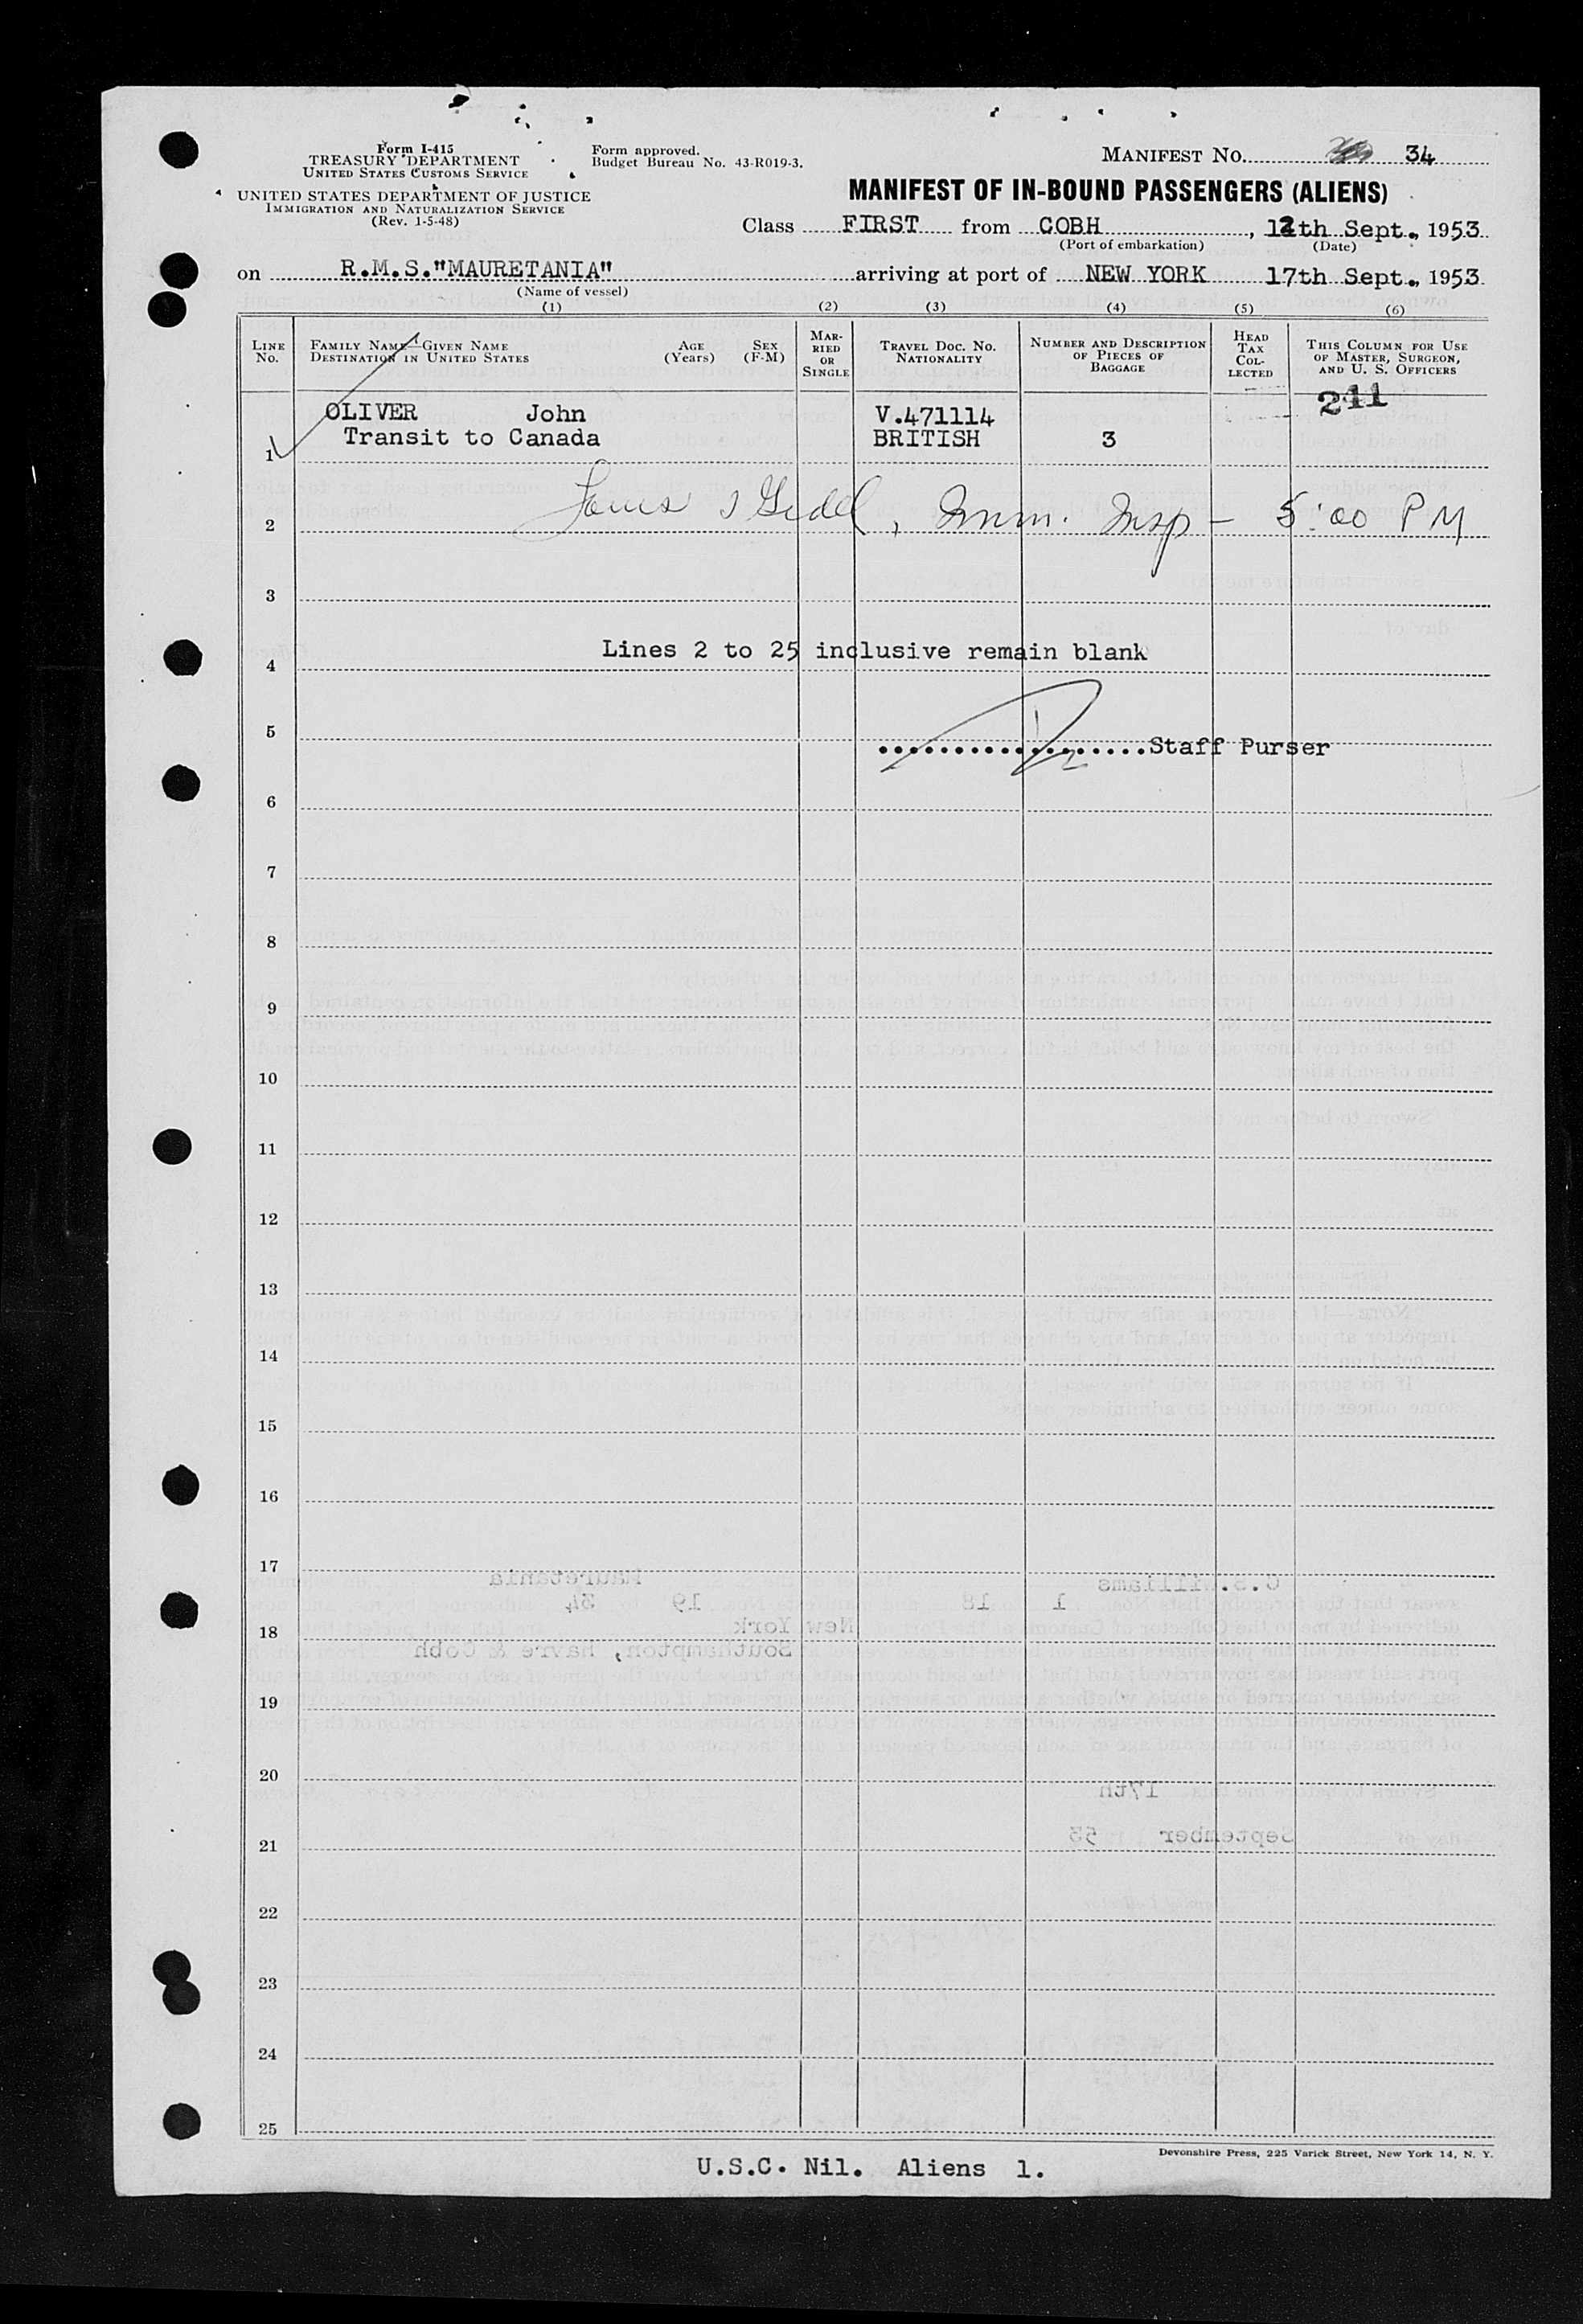 Form I-415
TREASURY DEPARTMENT
UNITED STATES CUSTOMS SERVICE
UNITED STATES DEPARTMENT OF JUSTICE
IMMIGRATION AND NATURALIZATION SERVICE
(Rev. 1-5-48)
Form approved.
Budget Bureau No. 43-R019-3.
MANIFEST No. 34
MANIFEST OF IN-BOUND PASSENGERS (ALIENS)
Class FIRST from COBH, 12th Sept., 1953
(Port of embarkation) (Date)
on R.M.S."MAURETANIA" arriving at port of NEW YORK 17th Sept., 1953
(Name of vessel)
(1) (2) (3) (4) (5) (6)
LINE No.
FAMILY NAME—GIVEN NAME
DESTINATION IN UNITED STATES
AGE (Years)
SEX (F-M)
MARRIED OR SINGLE
TRAVEL DOC. NO.
NATIONALITY
NUMBER AND DESCRIPTION OF PIECES OF BAGGAGE
HEAD TAX COLLECTED
THIS COLUMN FOR USE OF MASTER, SURGEON, AND U. S. OFFICERS
211
OLIVER John V.471114
1 Transit to Canada BRITISH 3
2 , Imm. Insp - 5:00 PM
3
4 Lines 2 to 25 inclusive remain blank
5 Staff Purser
6
7
8
9
10
11
12
13
14
15
16
17
Mauretania
18
New York
Southampton, havre & Cobh
19
20
17th
21
September 53
22
23
24
25
Devonshire Press, 225 Varick Street, New York 14, N. Y.
U.S.C. Nil. Aliens 1.